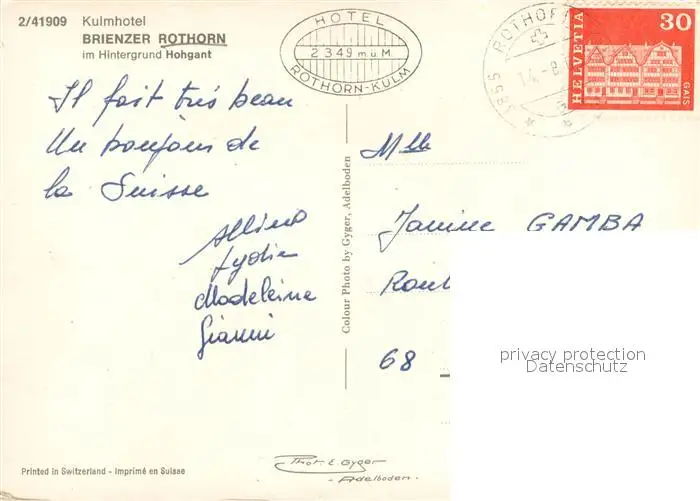 2/41909 Kulmhotel
BRIENZER ROTHORN
im Hintergrund Hohgant
HOTEL
2349 m.ü.M
ROTHORN-KULM
ROTHOR
14.-8.
HELVETIA
30
GAIS
Il fait très beau
Un bonjour de
la Suisse
Lydia
Madeleine
Gianni
Colour Photo by Gyger, Adelboden
Mlle
Janine GAMBA
68
privacy protection
Datenschutz
Printed in Switzerland - Imprimé en Suisse
Phot. E. Gyger
- Adelboden.